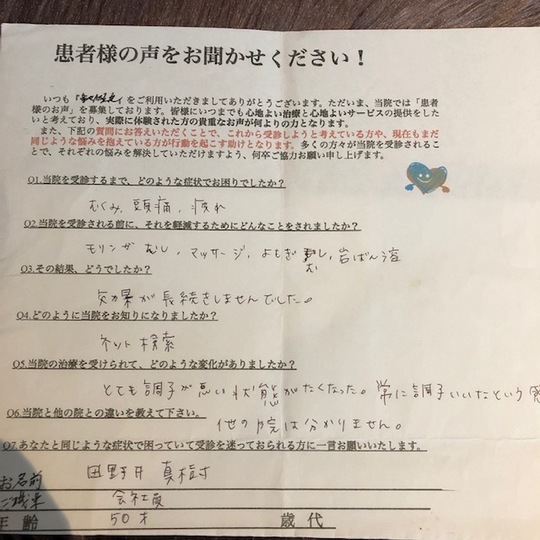 患者様の声をお聞かせください！
いつも をご利用いただきましてありがとうございます。ただいま、当院では「患者
様のお声」を募集しております。皆様にいつまでも心地よい治療と心地よいサービスの提供をした
いと考えており、実際に体験された方の貴重なお声が何よりの力となります。
また、下記の質問にお答えいただくことで、これから受診しようと考えている方や、現在もまだ
同じような悩みを抱えている方が行動を起こす助けとなります。多くの方々が当院を受診されるこ
とで、それぞれの悩みを解決していただけますよう、何卒ご協力お願い申し上げます。
Q1.当院を受診するまで、どのような症状でお困りでしたか？
むくみ、頭痛、疲れ
Q2.当院を受診される前に、それを軽減するためにどんなことをされましたか？
モリンガむし、マッサージ、よもぎむし、岩ばん浴
Q3.その結果、どうでしたか？
効果が長続きしませんでした。
Q4.どのように当院をお知りになりましたか？
ネット検索
Q5.当院の治療を受けられて、どのような変化がありましたか？
とても調子が悪い状態がなくなった。常に調子いいなという感
Q6.当院と他の院との違いを教えて下さい。
他の院は分かりません。
Q7.あなたと同じような症状で困っていて受診を迷っておられる方に一言お願いいたします。
お名前 田野井 真樹
ご職業 会社員
年齢 50才 歳代